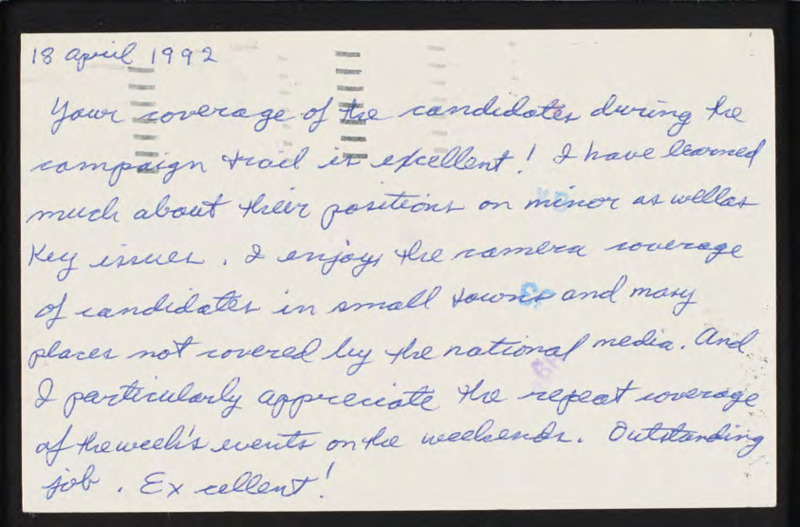 18 April 1992
Your coverage of the candidates during the
campaign trail is excellent! I have learned
much about their positions on minor as well as
key issues. I enjoy the camera coverage
of candidates in small towns and many
places not covered by the national media. And
I particularly appreciate the repeat coverage
of the week's events on the weekends. Outstanding
job. Excellent!